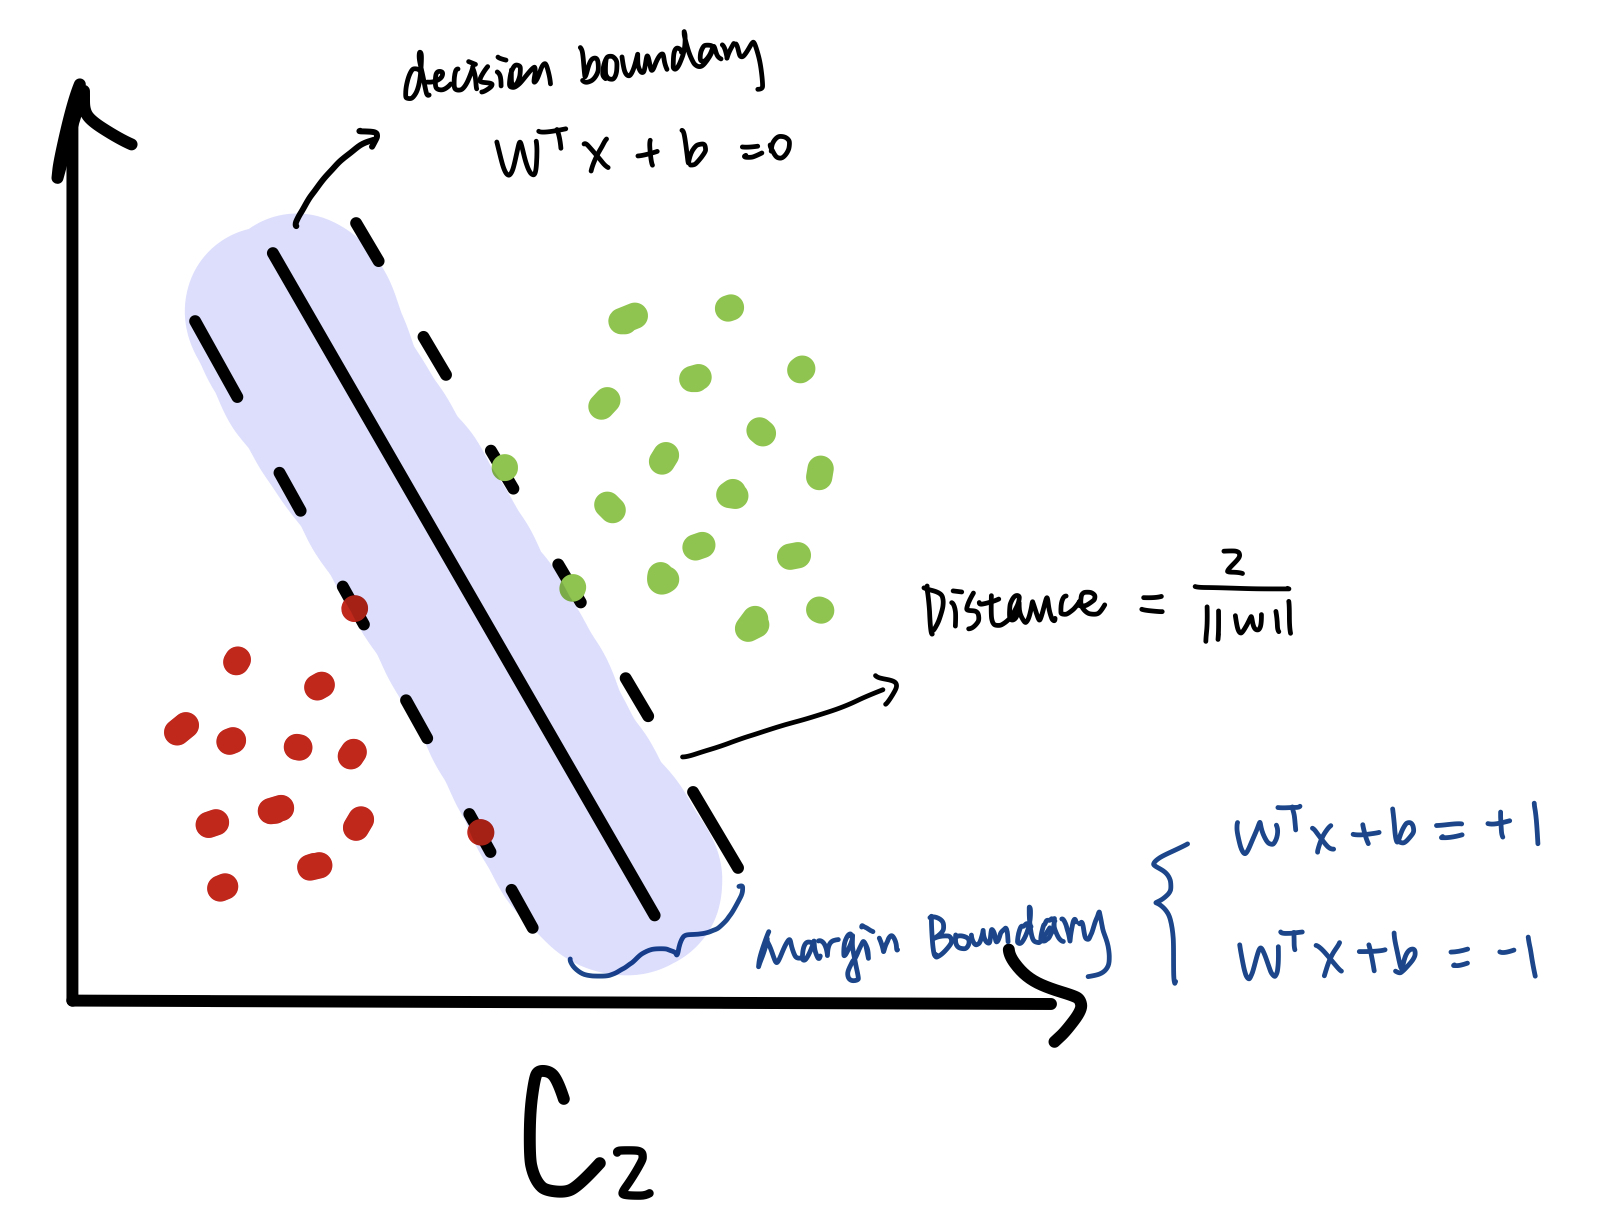 decision boundary
Wᵀx + b = 0
Distance = 2/||w||
Wᵀx + b = +1
Margin Boundary
Wᵀx + b = -1
C₂